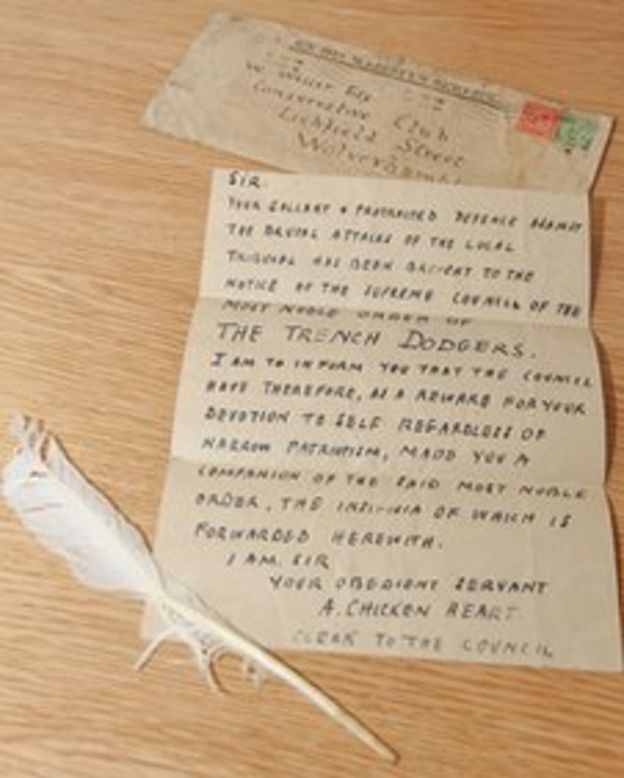 ON HIS MAJESTY'S SERVICE
Esq
Conservative Club
Lichfield Street
Wolverhampt
SIR.
YOUR GALLANT & PROTRACTED DEFENCE AGAINST
THE BRUTAL ATTACKS OF THE LOCAL
TRIBUNAL HAS BEEN BROUGHT TO THE
NOTICE OF THE SUPREME COUNCIL OF THE
MOST NOBLE ORDER OF
THE TRENCH DODGERS.
I AM TO INFORM YOU THAT THE COUNCIL
HAVE THEREFORE, AS A REWARD FOR YOUR
DEVOTION TO SELF REGARDLESS OF
NARROW PATRIOTISM, MADE YOU A
COMPANION OF THE SAID MOST NOBLE
ORDER, THE INSIGNIA OF WHICH IS
FORWARDED HEREWITH.
I AM. SIR
YOUR OBEDIENT SERVANT
A. CHICKEN HEART
CLERK TO THE COUNCIL